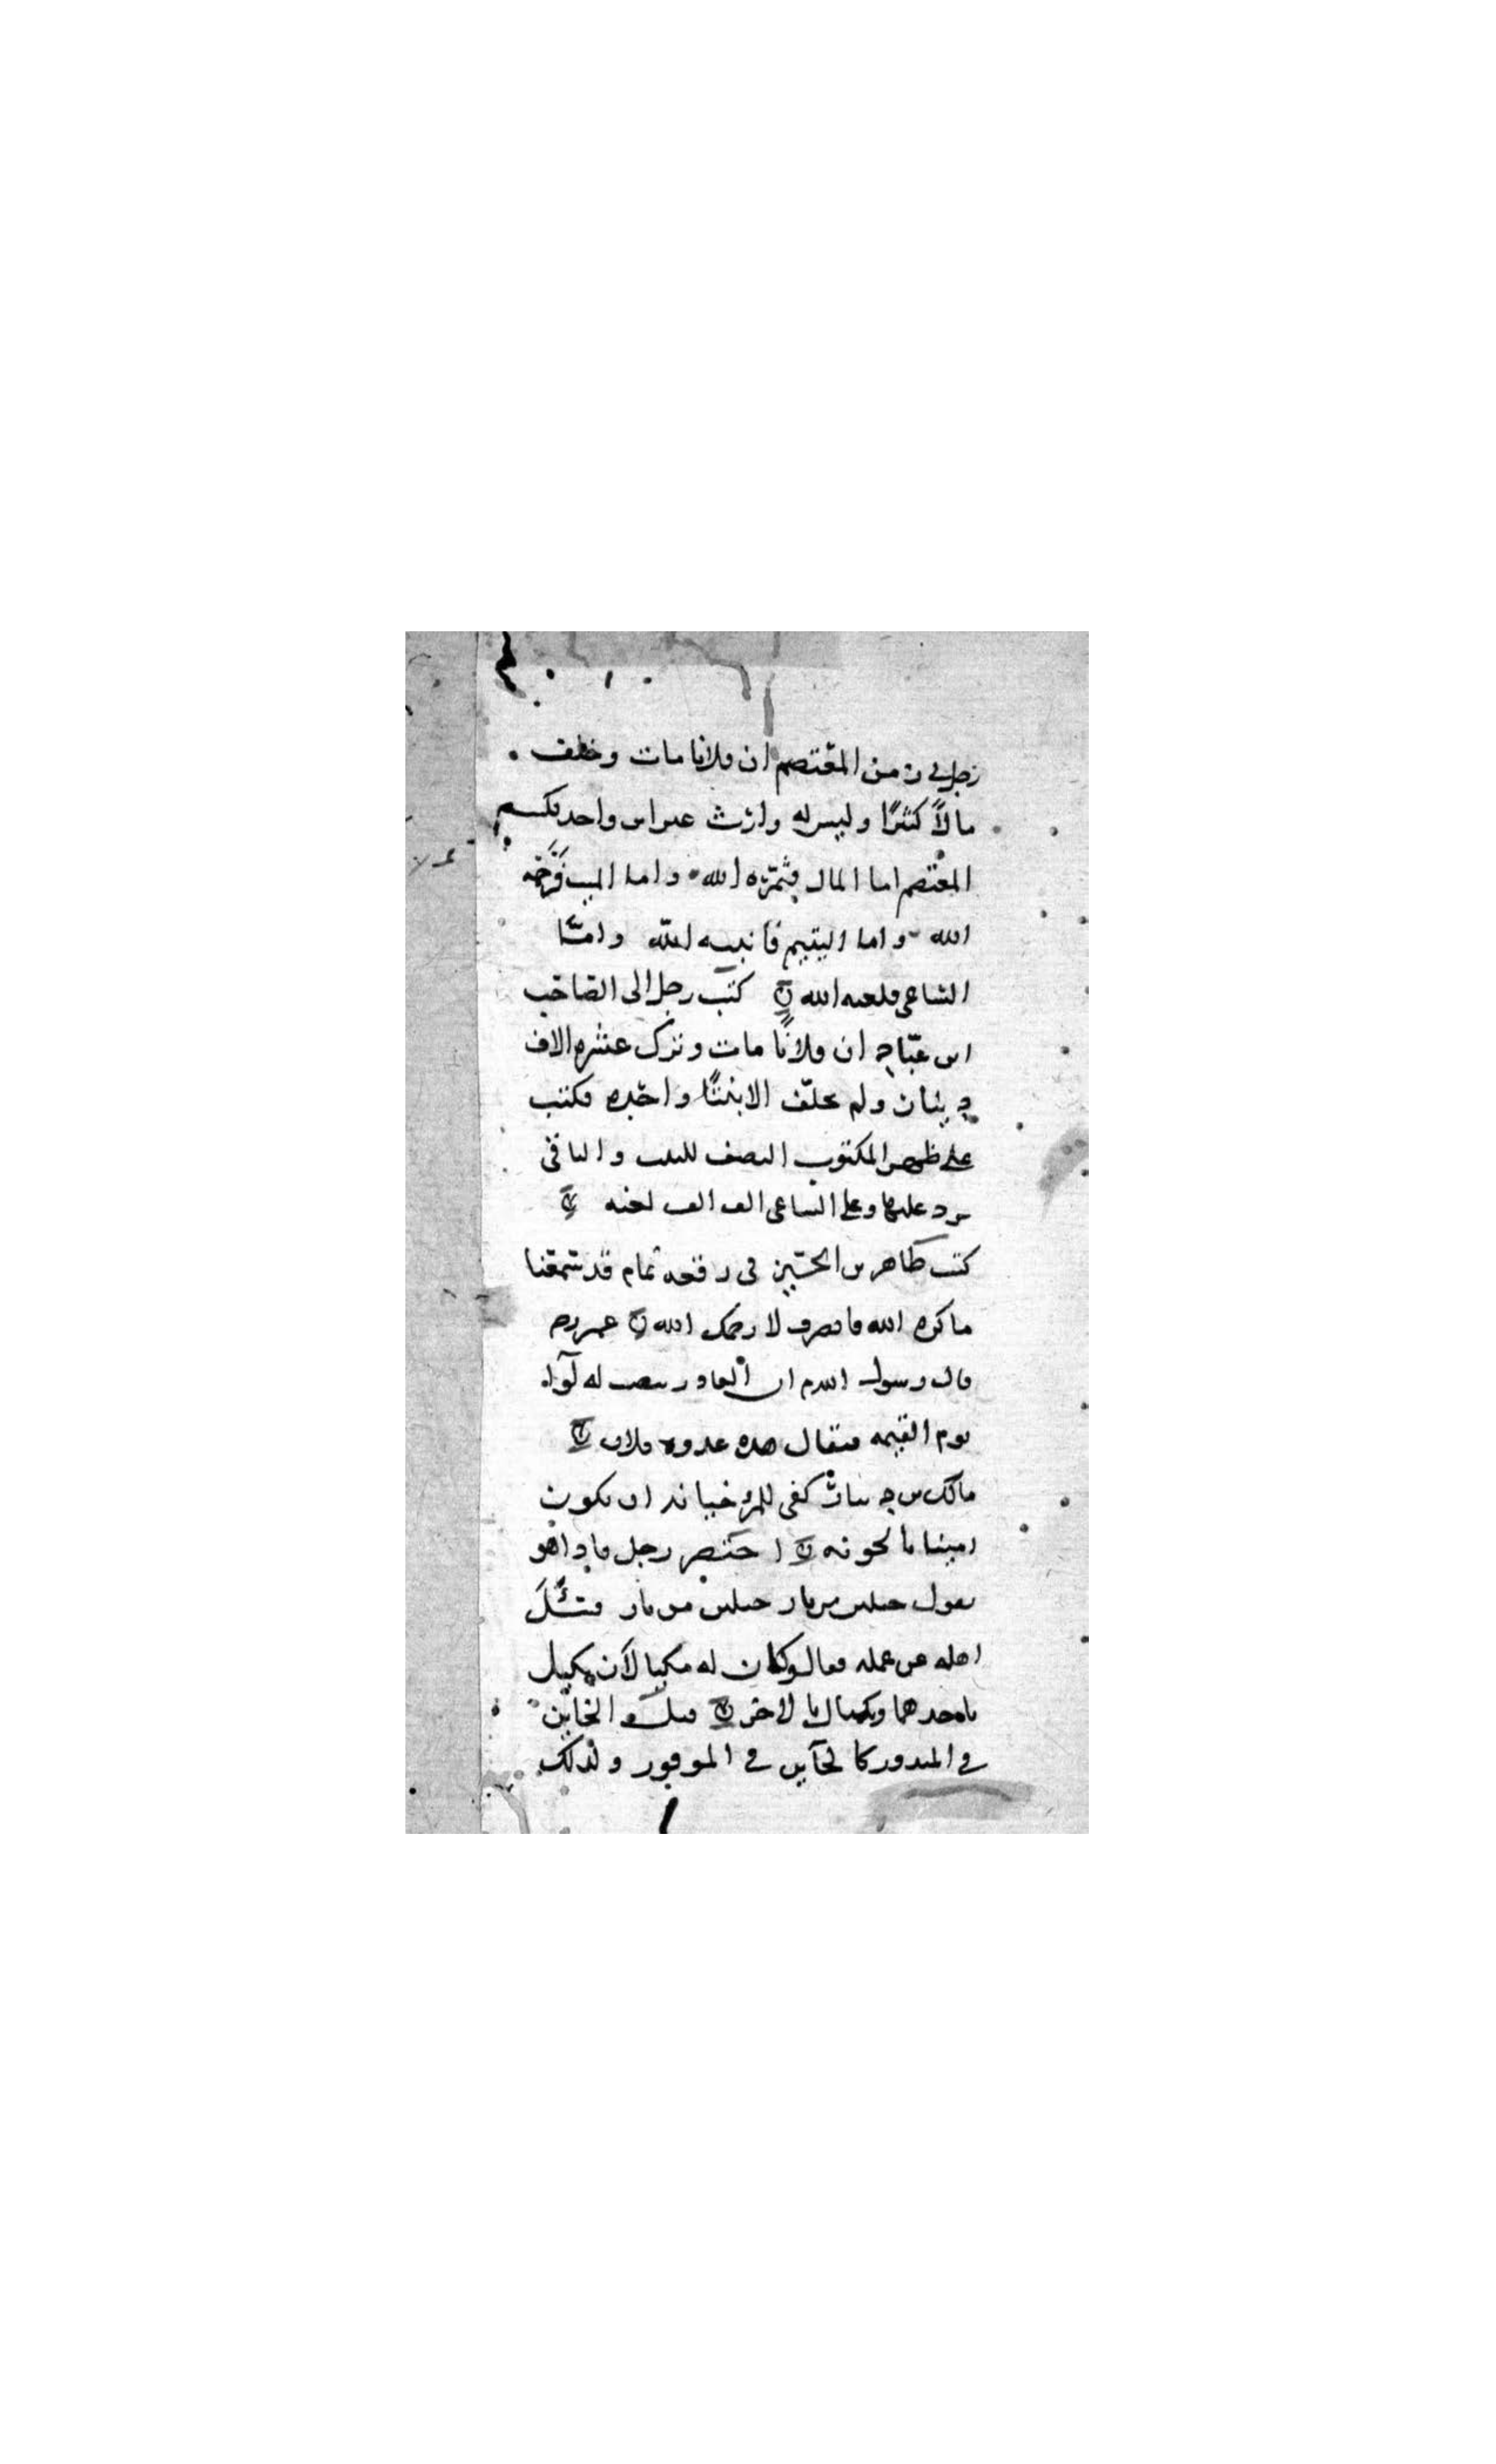 رجل في زمن المعتصم ان فلانا مات وخلف
مالاً كثيرًا وليس له وارث غير ابن واحد فكتب
المعتصم اما المال فثمّره الله واما الميت فرَحمه
الله واما اليتيم فانبته الله وامّا
الساعى فلعنه الله كتب رجل الى الصاحب
ابن عبّاد ان فلانًا مات وترك عشره الاف
دينار ولم يخلّف الا بنتًا واحده فكتب
على ظهر المكتوب النصف للبنت والباقى
يرد عليها وعلى الساعى الف الف لعنه
كتب طاهر بن الحسين فى رقعه نمام قد سمعنا
ما كره الله فانصرف لا رحمك الله عمر رضه
قال رسول الله م ان الغادر ينصب له لوآء
يوم القيمه فيقال هذه غدره فلان
مالك بن دينار كفى للمرء خيانه ان يكون
امينا بالخونه احتضر رجل فاذا هو
يقول جبلين من نار جبلين من نار فسئل
اهله عن عمله فقالوا كان له مكيالان يكيل
باحدهما ويكتال بالاخر الخاين
في كالخآين في الموفور ولذلك